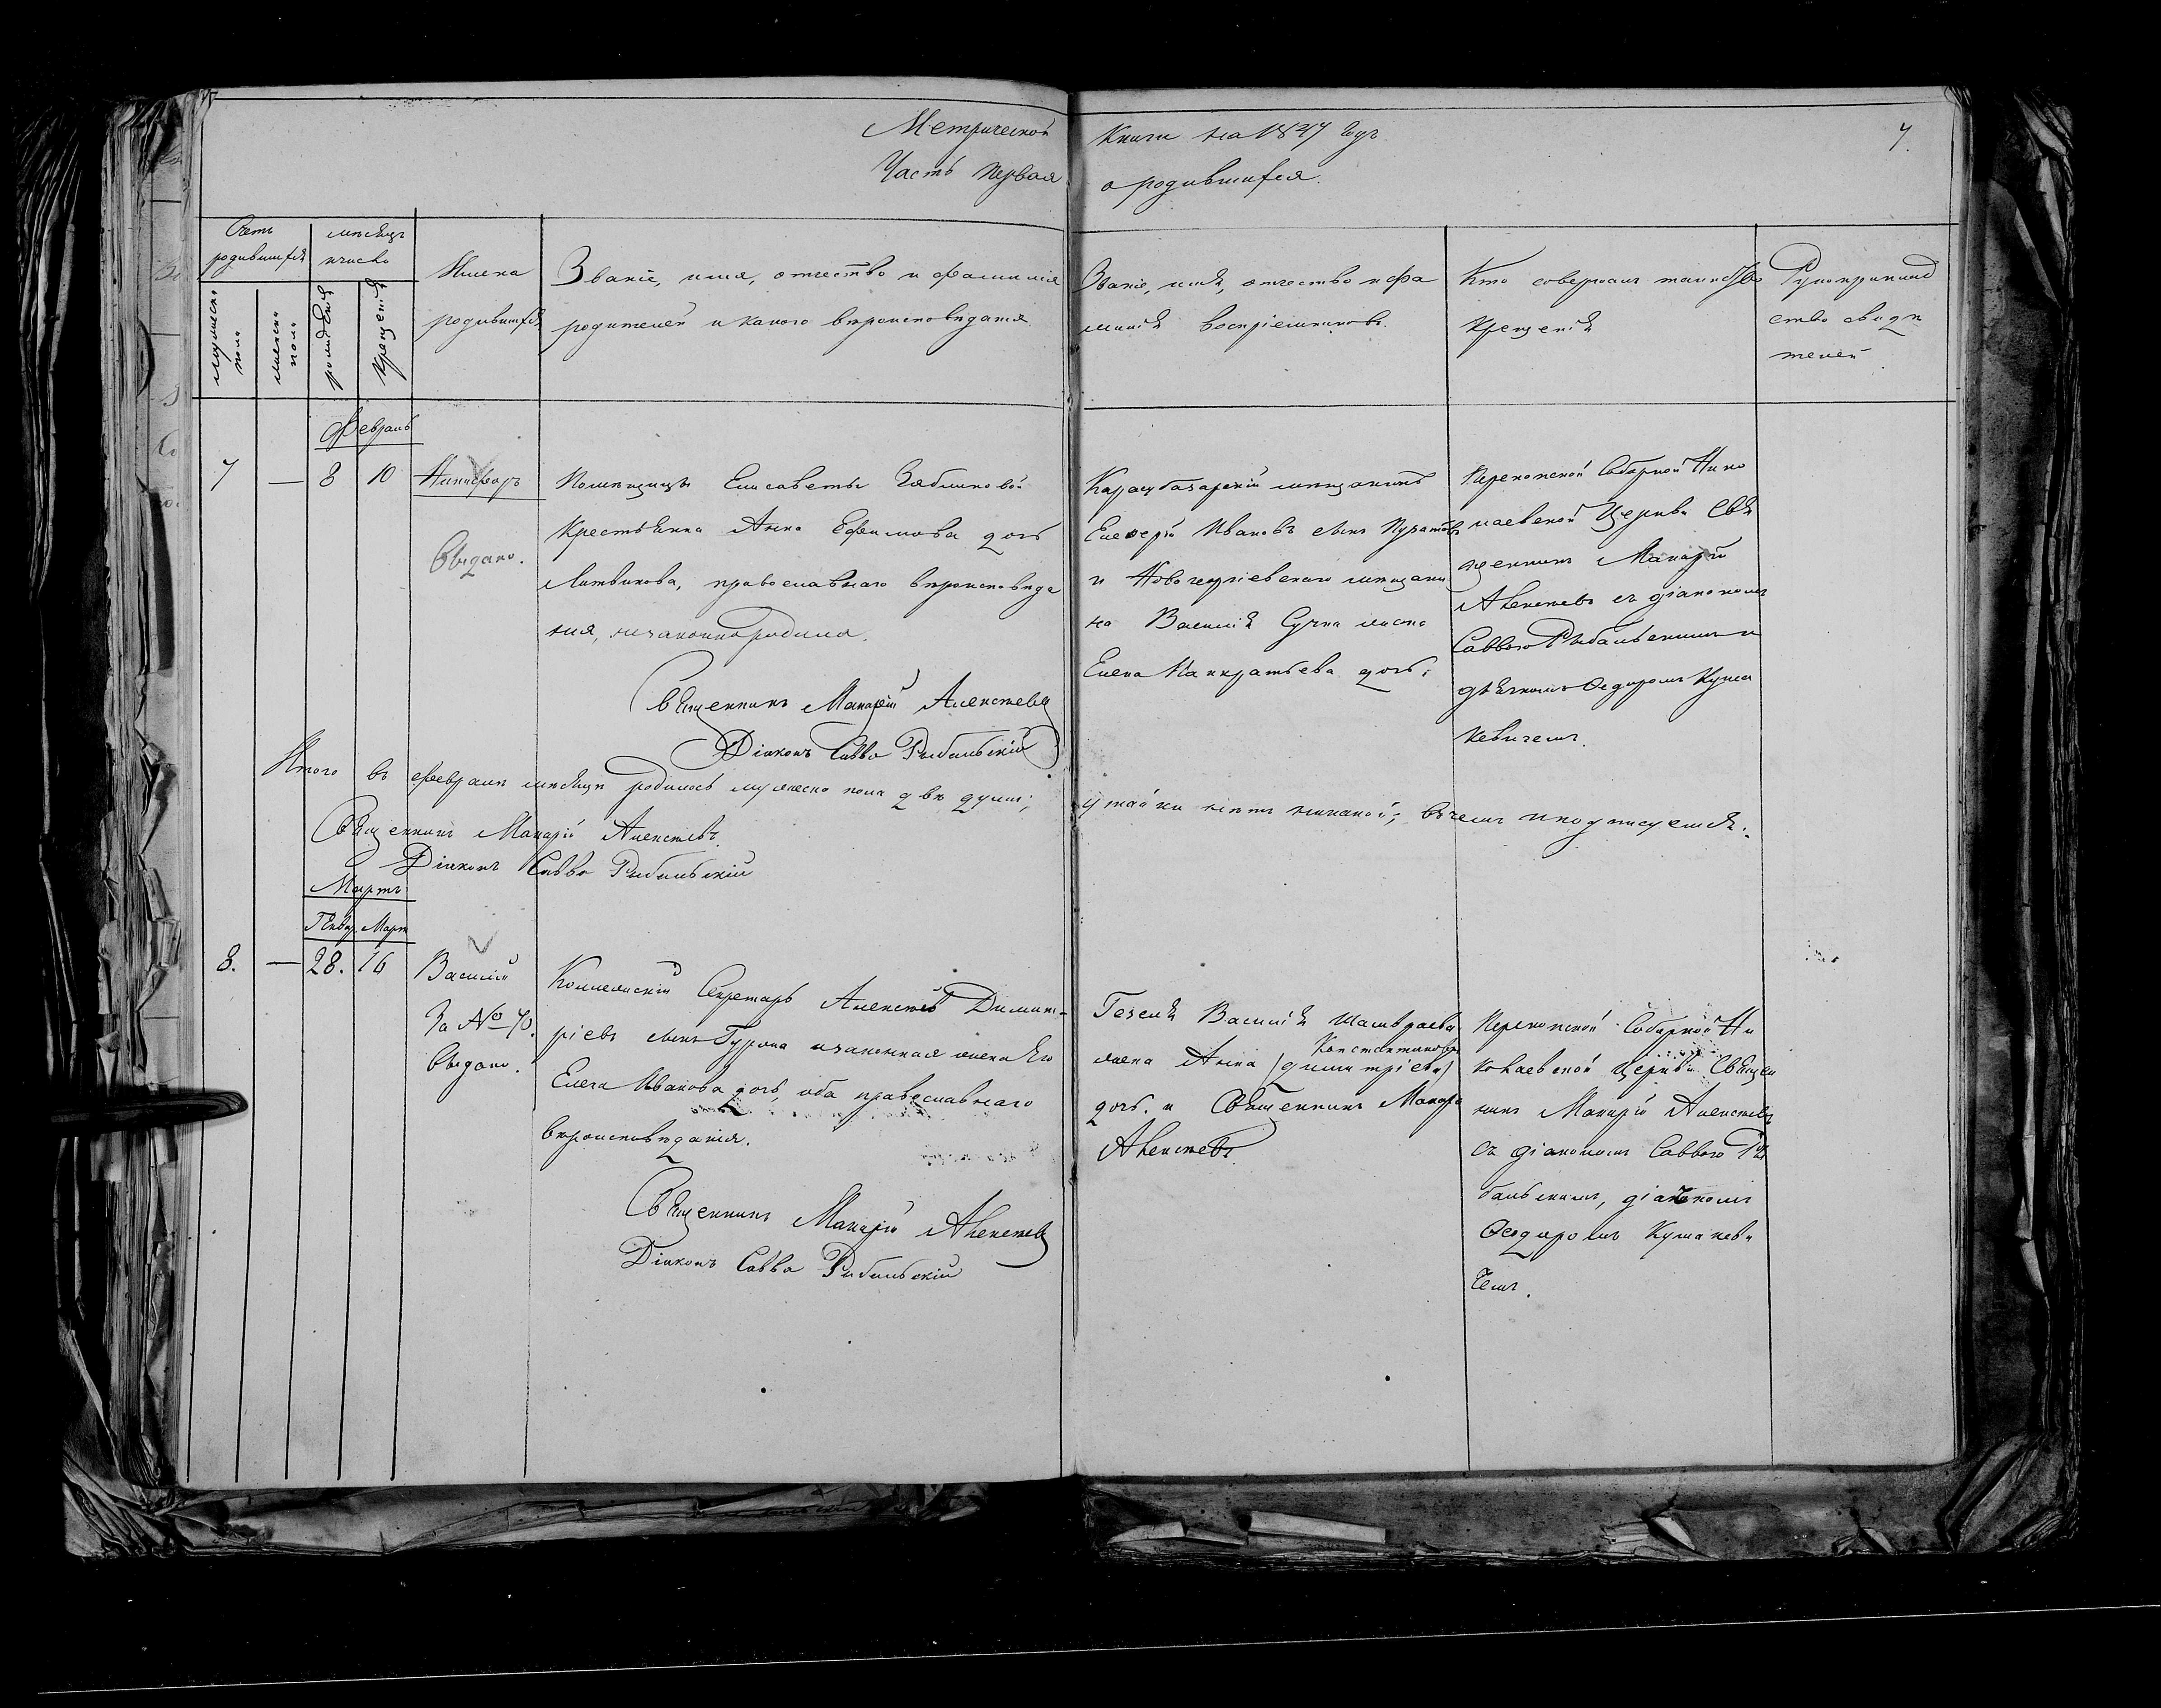 Метрической Книги на 1847 годъ 7.
Часть первая о родившихся.
Счетъ родившихся
мѣсяцъ и число
мужеска пола
женска пола
рожденія
крещенія
Имена
родившихся
Званіе, имя, отчество и фамилія
родителей и какого вѣроисповѣданія
Званіе, имя, отчество и фа
милія воспріемниковъ.
Кто совершалъ таинство
крещенія
Рукоприклад
ство свидѣ
телей
Февраль
7 — 8 10 Никифоръ
Выдано.
Помѣщицы Елисаветы Зябликовой
крестьянка Анна Ефимова дочь
Литвинова, православнаго вѣроисповѣда
нія, незаконнородила.
Священникъ Макарій Алексѣевъ
Діаконъ Савва Рыбальскій
Карасубазарскій мѣщанинъ
Елевѳерій Ивановъ сынъ
и Новогеоргіевскаго мѣщани
на Василія жена
Елена Панкратьева дочь;
Перекопской Соборной Нико
лаевской Церкви Свя
щенникъ Макарій
Алексѣевъ съ діакономъ
Саввою Рыбальскимъ и
дьячкомъ Ѳедоромъ Кума
кевичемъ.
Итого въ февралѣ мѣсяцѣ родилось мужеска пола двѣ души; утайки нѣтъ никакой; въ чемъ и подписуемся:.
Священникъ Макарій Алексѣевъ.
Діаконъ Савва Рыбальскій
Мартъ
Генвар. Март
8. — 28. 16 Василій
За № 70.
Выдано.
Коллежскій Секретарь Алексѣй Димит-
ріевъ сынъ и законная жена Его
Елена Иванова дочь, оба православнаго
вѣроисповѣданія.
Священникъ Макарій Алексѣевъ
Діаконъ Савва Рыбальскій
Василія
Константинова
жена Анна (Димитріева)
дочь. и Священникъ Макарій
Алексѣевъ.
Перекопской Соборной Ни
колаевской Церкви Священ
никъ Макарій Алексѣевъ
съ діакономъ Саввою Ры
бальскимъ, діачкомъ
Ѳеодоромъ Кумакеви
чемъ.